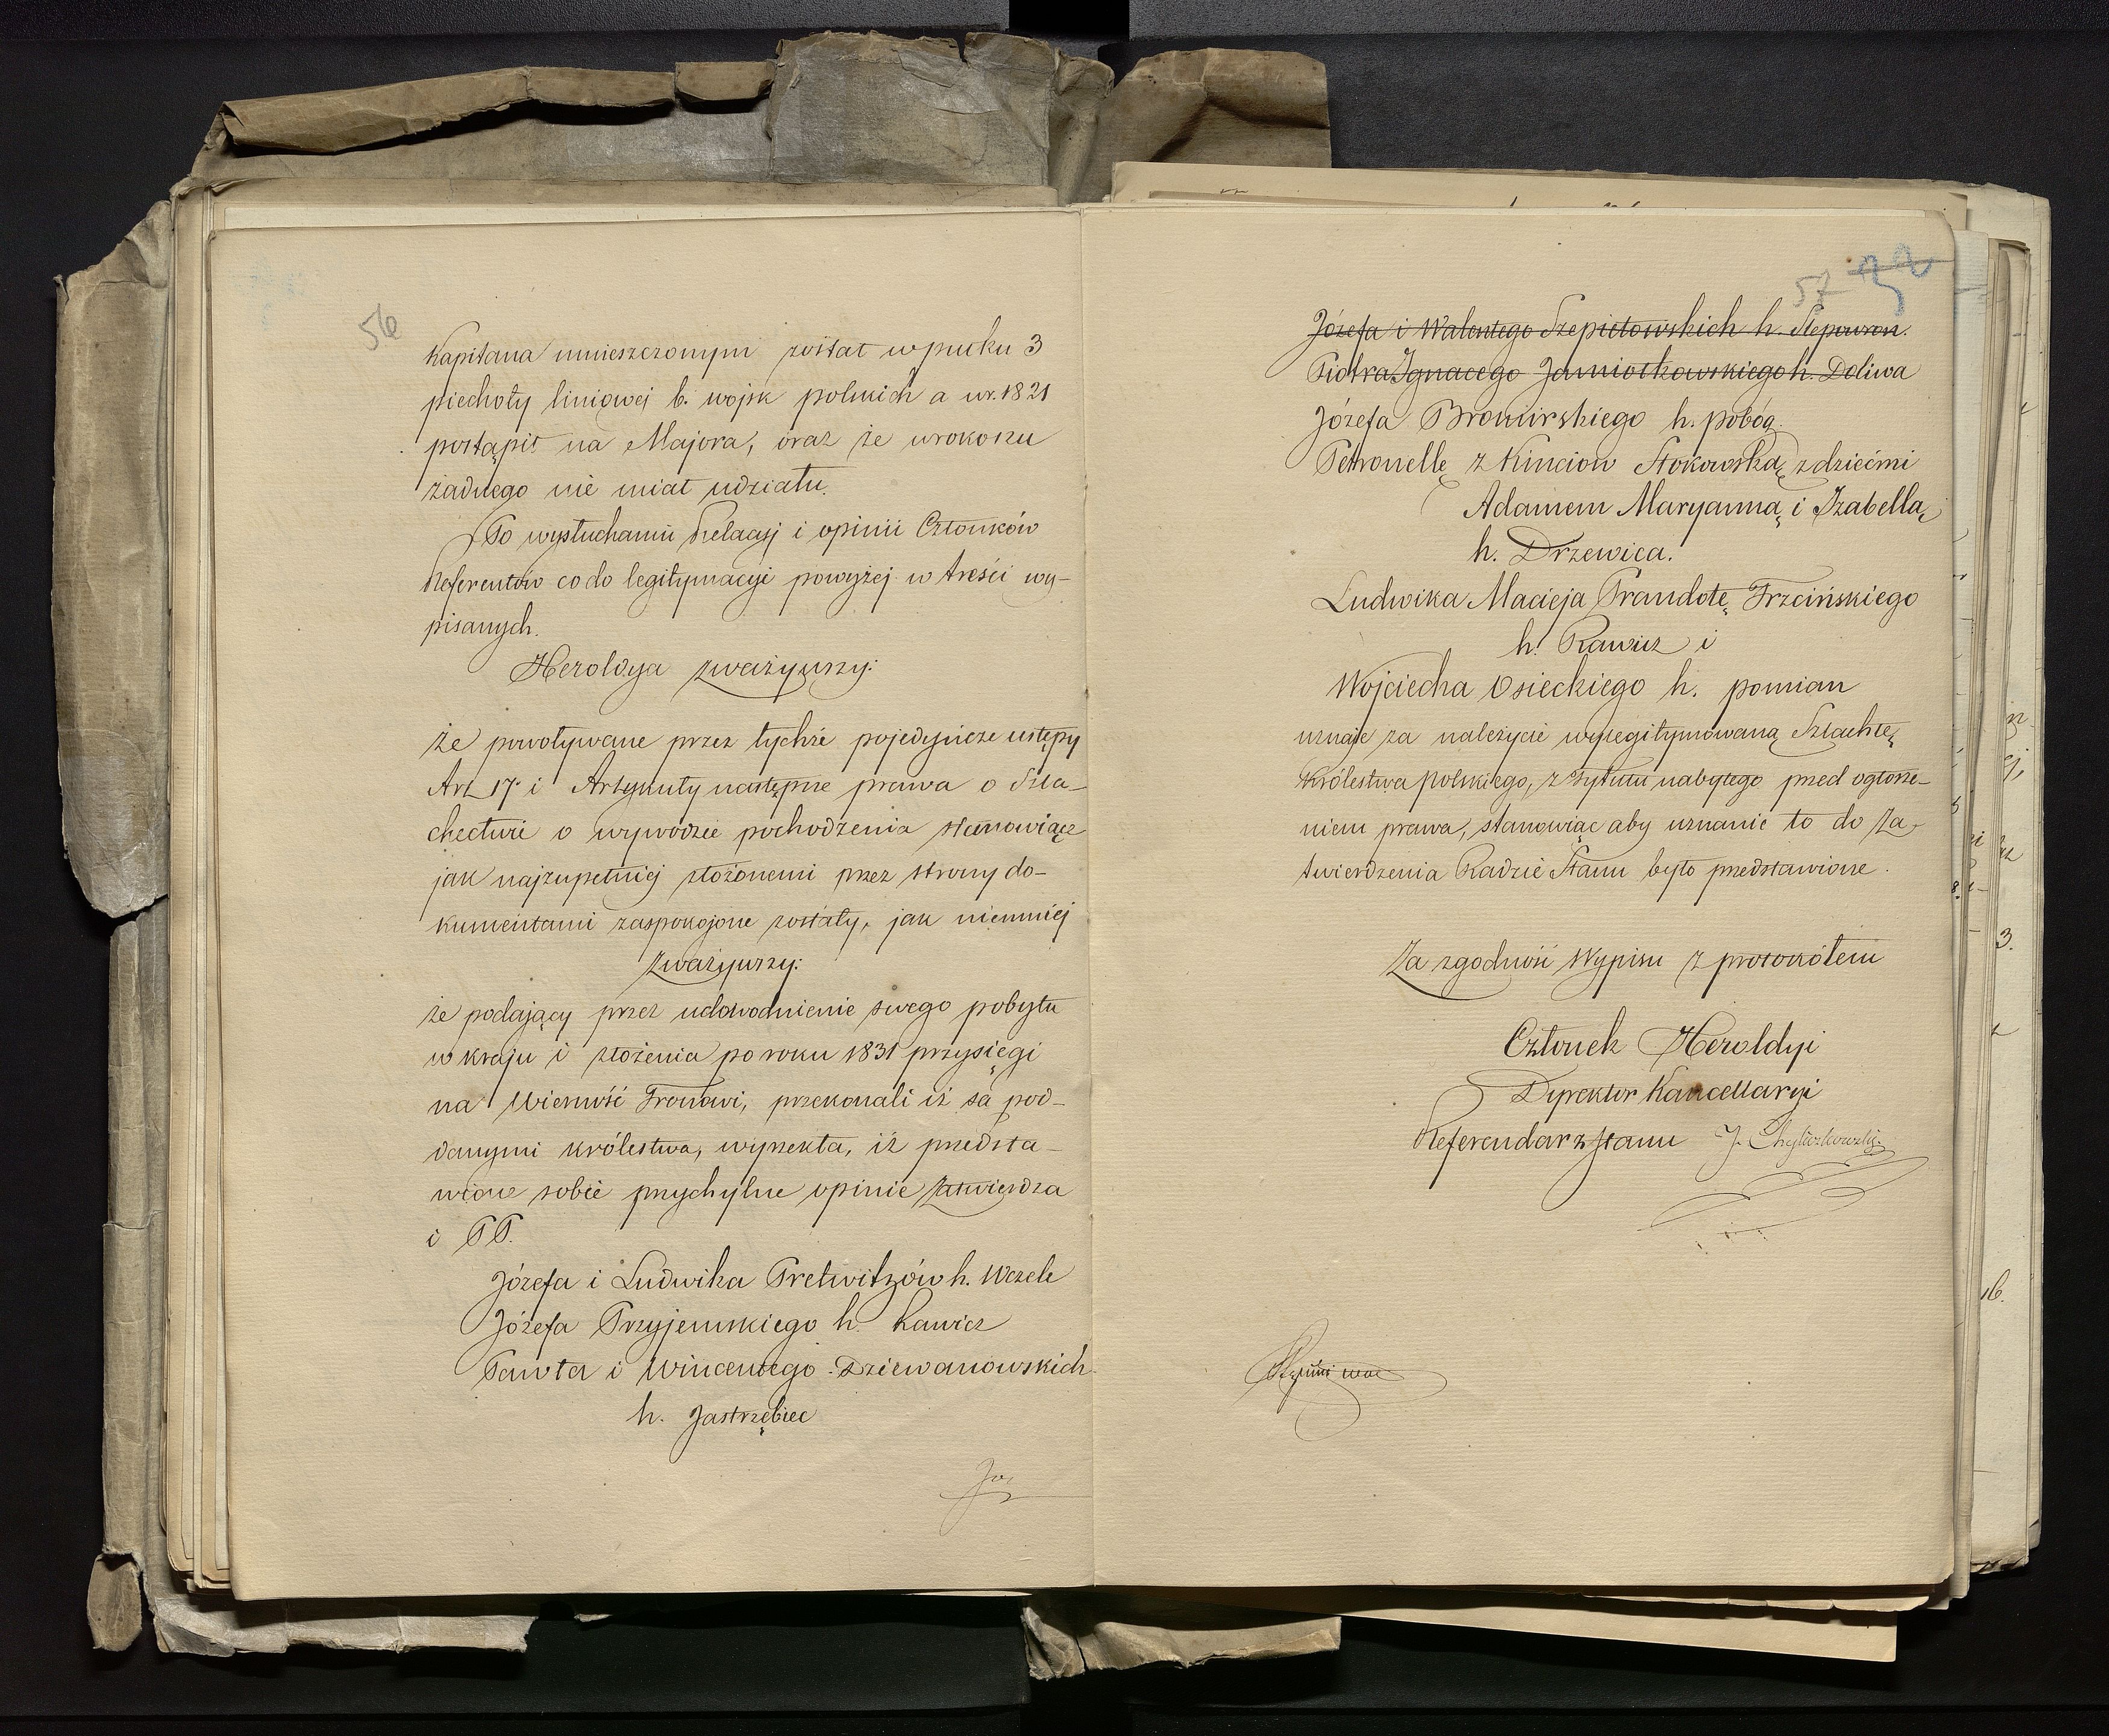 56
Kapitana umieszczonym został w pułku 3
piechoty liniowej b. wojsk polskich a w r. 1821
postąpił na Majora, oraz że w rokoszu
żadnego nie miał udziału.
Po wysłuchaniu Relacyj i opinii Członków
Referentów co do legitymacyi powyżej w treści wy-
pisanych.
Heroldya zważywszy:
że powoływane przez tychże pojedyńcze ustępy
Art. 17 i Artykuły następne prawa o Szla-
chectwie o wywodzie pochodzenia stanowiące
jak najzupełniej złożonemi przez strony do-
kumentami zaspokojone zostały, jak niemniej
Zważywszy:
że podający przez udowodnienie swego pobytu
w kraju i złożenia po roku 1831 przysięgi
na Wierność Tronowi, przekonali iż są pod-
danymi królestwa, wyrzekła, iż przedsta-
wione sobie przychylne opinie zatwierdza
i PP.
Józefa i Ludwika Pretwitzów h. Wczele
Józefa Przyjemskiego h. Rawicz
Pawła i Wincentego Dziewanowskich
h. Jastrzębiec
Józ
57
Józefa i Walentego Szepietowskich h. Ślepowron.
Piotra Ignacego Jamiołkowskiego h. Doliwa
Józefa Bromirskiego h. pobóg.
Petronellę z Kinciow Stokowską z dziećmi
Adamem Maryanną i Izabellą
h. Drzewica.
Ludwika Macieja Prandotę Trzcińskiego
h. Rawicz i
Wojciecha Osieckiego h. pomian
uznaje za należycie wylegitymowaną Szlachtę
Królestwa Polskiego, z tytułu nabytego przed ogłosze-
niem prawa, stanowiąc aby uznanie to do Za-
twierdzenia Radzie Stanu było przedstawione.
Za zgodność Wypisu z protokółem
Członek Heroldyi
Dyrektor Kancellaryi
Referendarz Stanu J.